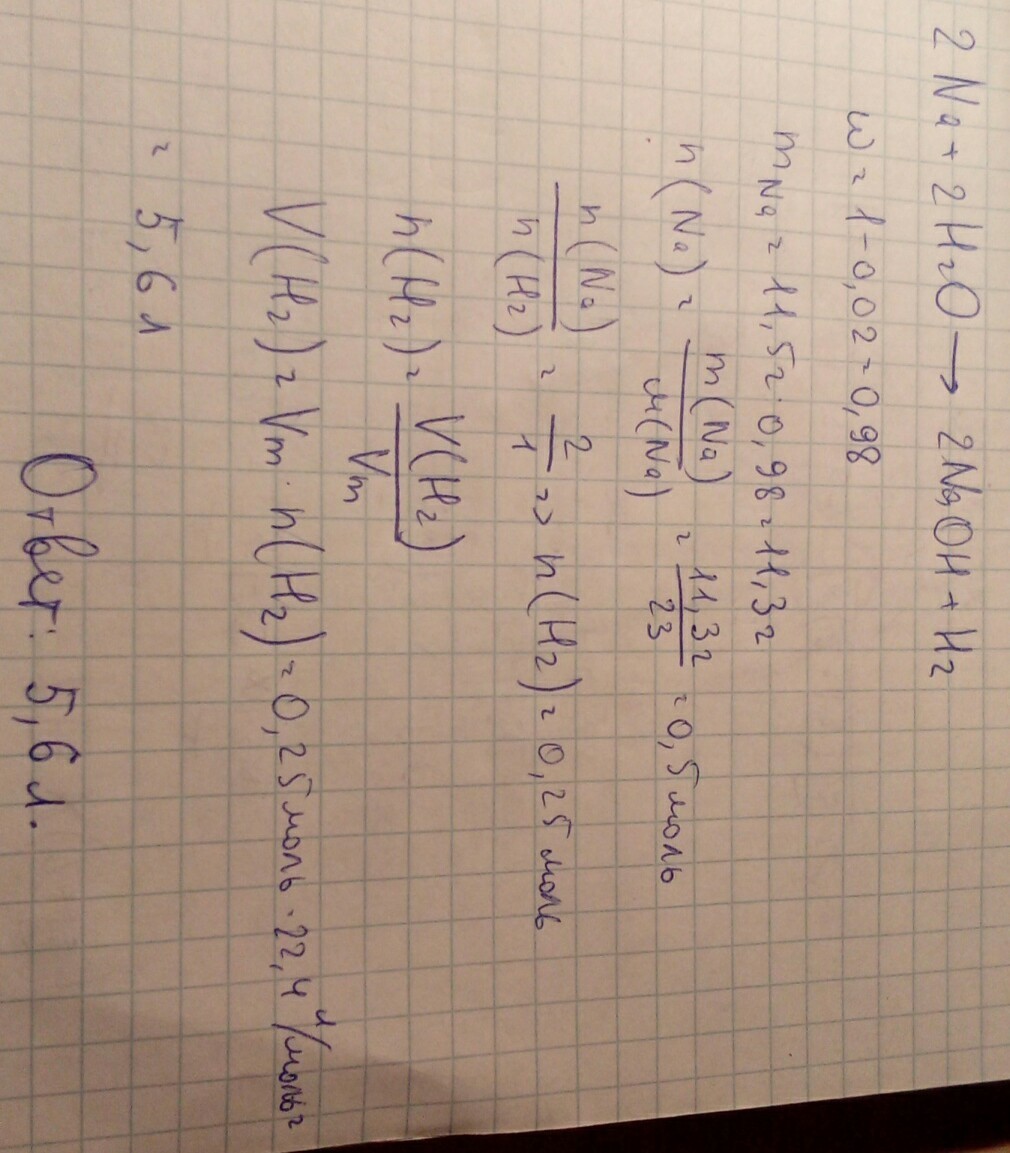 2Na + 2H₂O → 2NaOH + H₂
ω = 1 - 0,02 = 0,98
m Na = 11,5г · 0,98 = 11,3г
n(Na) = m(Na) / M(Na) = 11,3г / 23 = 0,5 моль
n(Na) / n(H₂) = 2 / 1 => n(H₂) = 0,25 моль
n(H₂) = V(H₂) / Vm
V(H₂) = Vm · n(H₂) = 0,25 моль · 22,4 л/моль =
= 5,6 л
Ответ: 5,6 л.